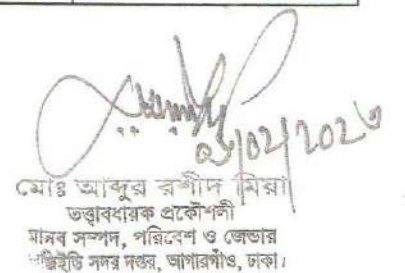 মোঃ আব্দুর রশীদ মিয়া
তত্ত্বাবধায়ক প্রকৌশলী
মানব সম্পদ, পরিবেশ ও জেন্ডার
সদর দপ্তর, আগারগাঁও, ঢাকা।